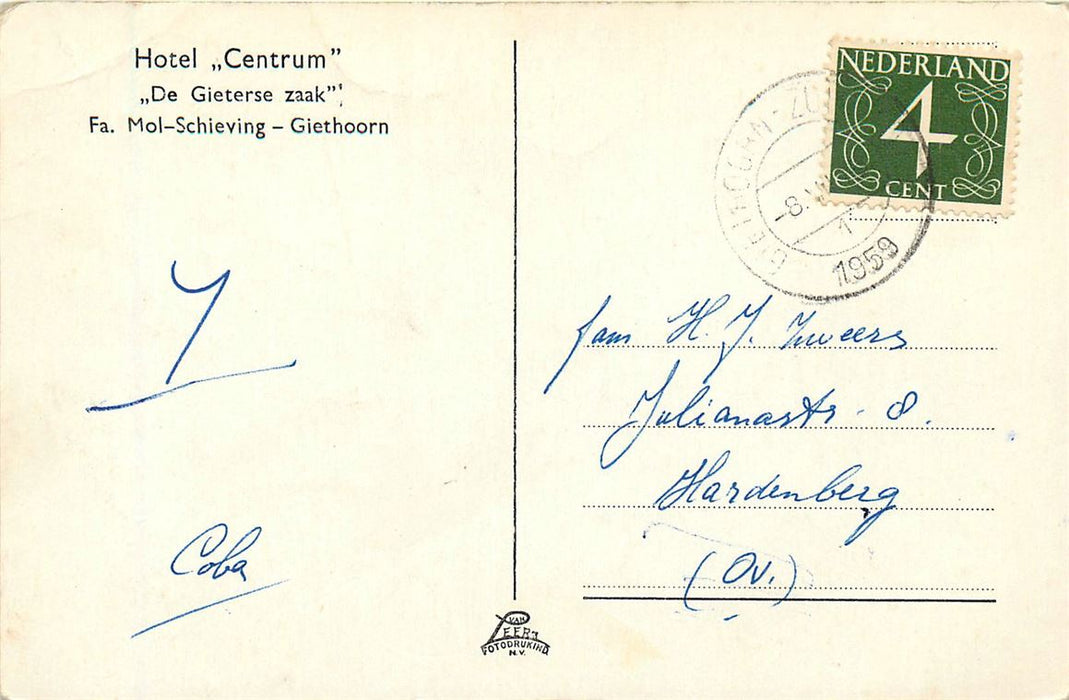 Hotel „Centrum”
„De Gieterse zaak”
Fa. Mol–Schieving – Giethoorn
Coba
VAN LEER'S
FOTODRUKIND
N.V.
NEDERLAND
4
CENT
GIETHOORN-ZUI
-8.VII
1
1959
fam H. J. Zweers
Julianastr. 8.
Hardenberg
(Ov.)